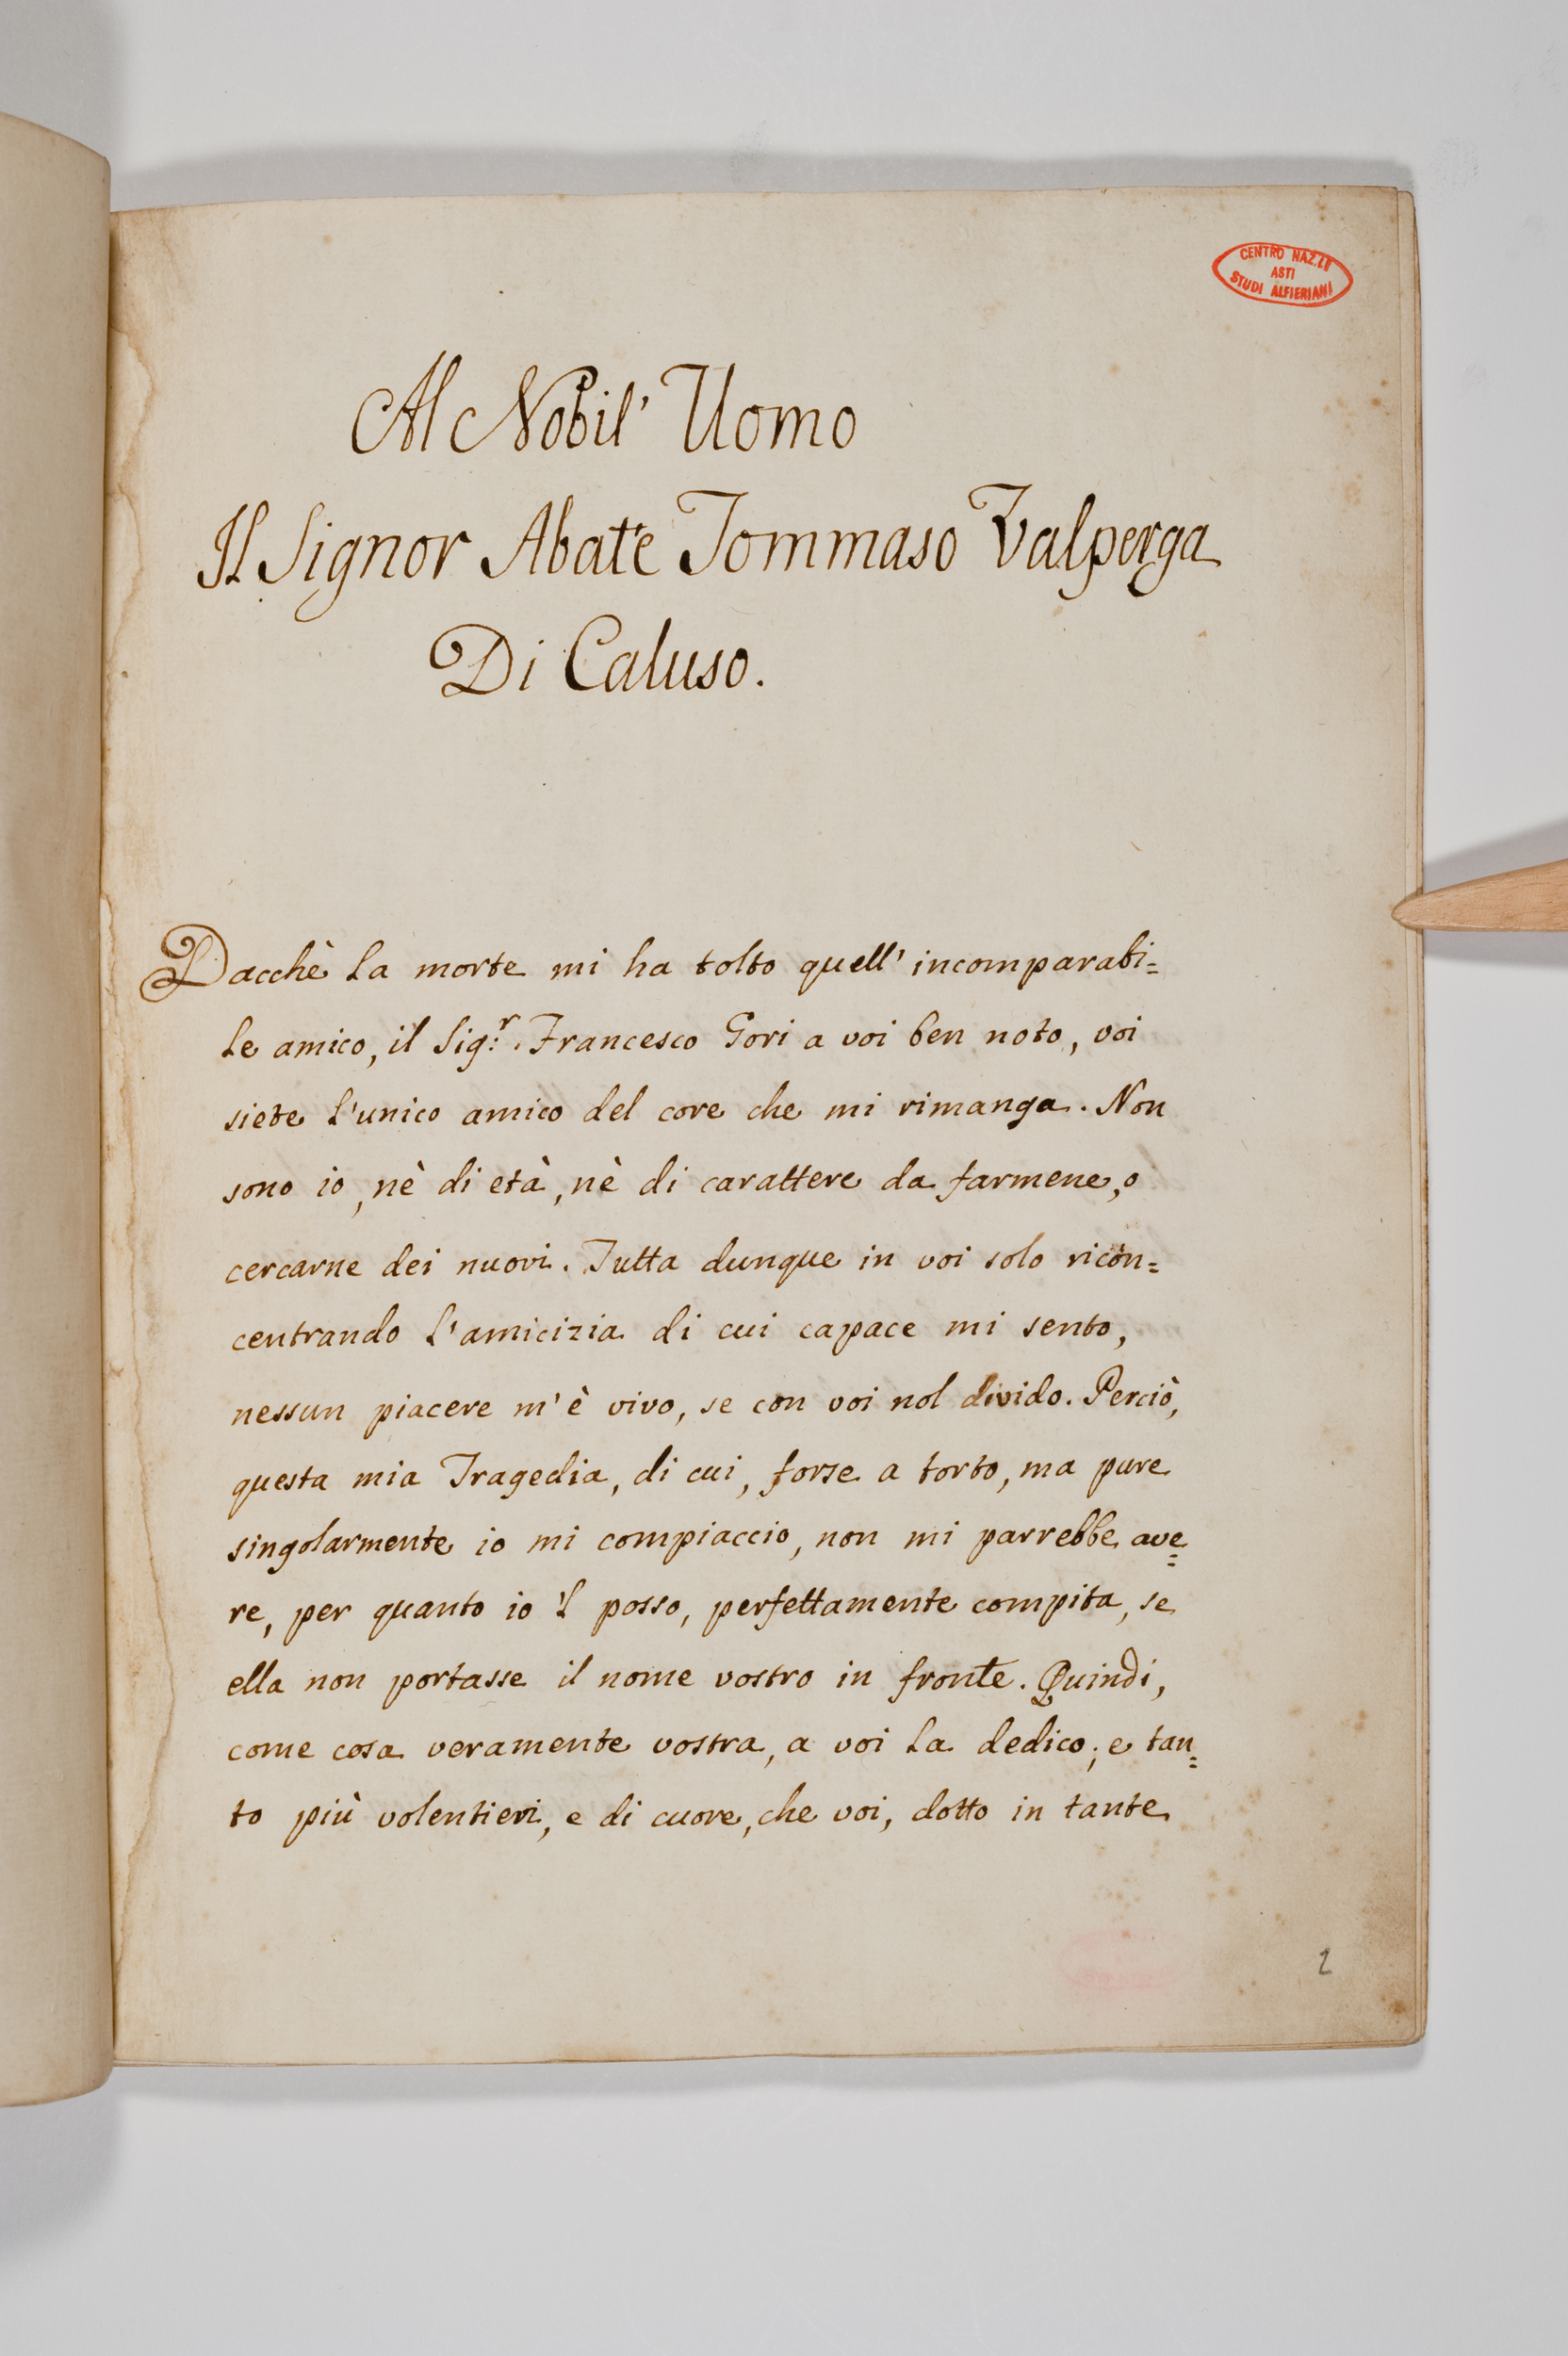 CENTRO NAZ.LE
ASTI
STUDI ALFIERIANI
Al Nobil' Uomo
Il Signor Abate Tommaso Valperga
Di Caluso.
Dacchè la morte mi ha tolto quell' incomparabi=
le amico, il Sig:r Francesco Gori a voi ben noto, voi
siete l'unico amico del core che mi rimanga. Non
sono io, nè di età, nè di carattere da farmene, o
cercarne dei nuovi. Tutta dunque in voi solo ricon=
centrando l'amicizia di cui capace mi sento,
nessun piacere m'è vivo, se con voi nol divido. Perciò,
questa mia Tragedia, di cui, forse a torto, ma pure
singolarmente io mi compiaccio, non mi parrebbe ave=
re, per quanto io 'l posso, perfettamente compita, se
ella non portasse il nome vostro in fronte. Quindi,
come cosa veramente vostra, a voi la dedico; e tan=
to più volentieri, e di cuore, che voi, dotto in tante
2